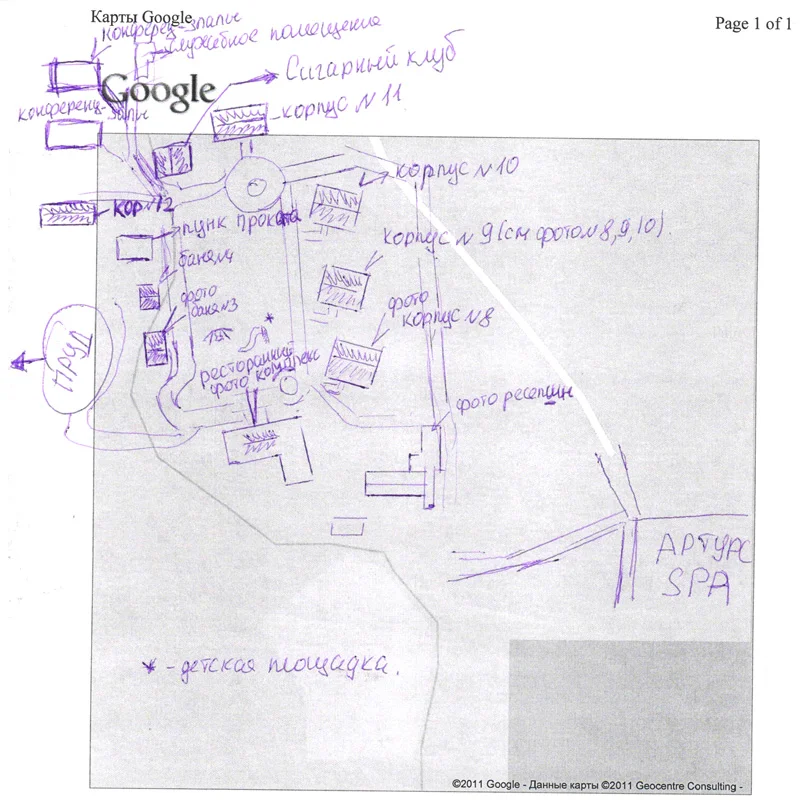 Карты Google
Page 1 of 1
конферец-зпалы
служебное помощение
Сигарный клуб
Google
конференц-зпалы
корпус №11
корпус №10
кор№12
пунк проката
корпус №9 (см фото №8,9,10).
баня№4
фото
баня№3
фото
корпус №8
*
ПРУД
ресторанный
фото комплекс
фото ресепшин
АРТУРС
SPA
* - детская площадка.
©2011 Google - Данные карты ©2011 Geocentre Consulting -